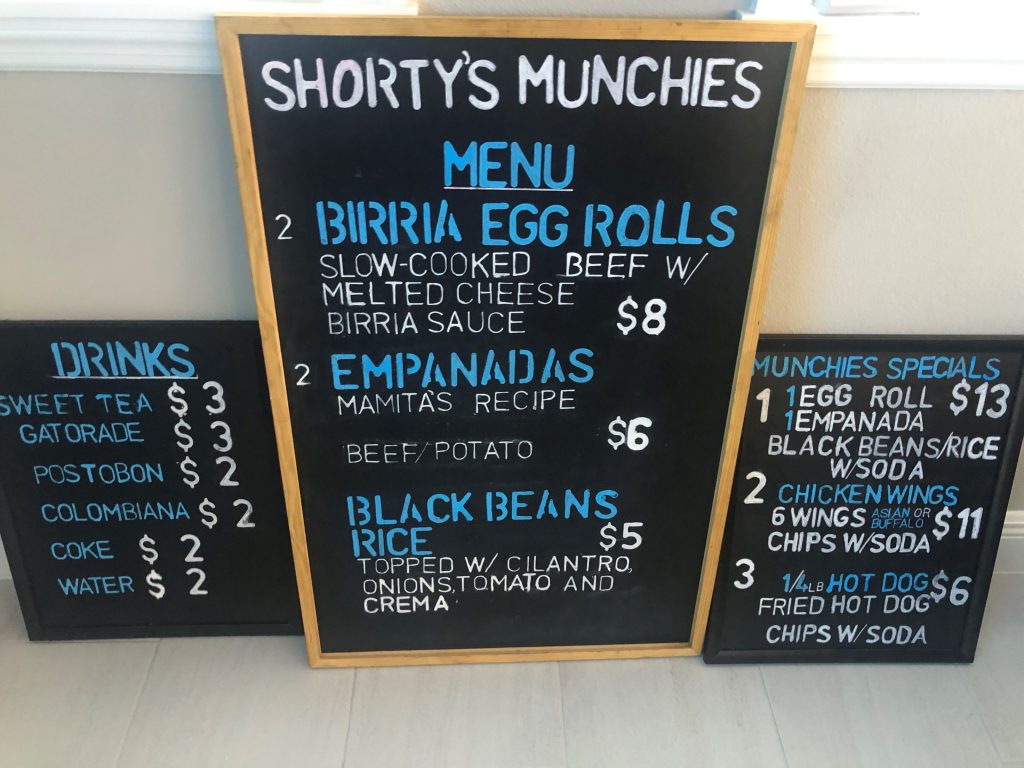 SHORTY'S MUNCHIES
MENU
2 BIRRIA EGG ROLLS
SLOW-COOKED BEEF W/
MELTED CHEESE
BIRRIA SAUCE $8
2 EMPANADAS
MAMITA'S RECIPE
$6
BEEF/POTATO
BLACK BEANS
RICE $5
TOPPED W/ CILANTRO,
ONIONS, TOMATO AND
CREMA
DRINKS
SWEET TEA $3
GATORADE $3
POSTOBON $2
COLOMBIANA $2
COKE $2
WATER $2
MUNCHIES SPECIALS
1 1 EGG ROLL $13
1 EMPANADA
BLACK BEANS/RICE
W/SODA
2 CHICKEN WINGS
6 WINGS ASIAN OR BUFFALO $11
CHIPS W/SODA
3 1/4LB HOT DOG $6
FRIED HOT DOG
CHIPS W/SODA